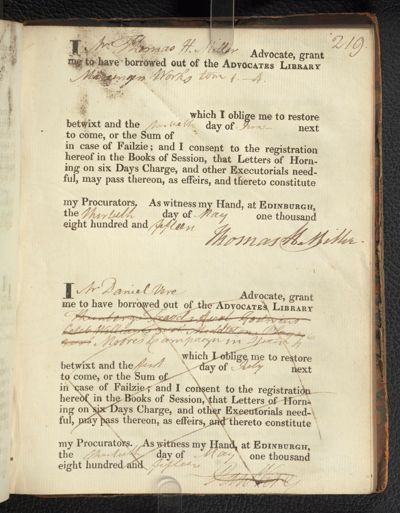 219.
I Mr Thomas H. Miller Advocate, grant
me to have borrowed out of the ADVOCATES LIBRARY
Works
which I oblige me to restore
betwixt and the day of June next
to come, or the Sum of
in case of Failzie; and I consent to the registration
hereof in the Books of Session, that Letters of Horn-
ing on six Days Charge, and other Executorials need-
ful, may pass thereon, as effeirs, and thereto constitute
my Procurators. As witness my Hand, at EDINBURGH,
the thirtieth day of May one thousand
eight hundred and fifteen
Thomas H. Miller.
I Mr Daniel Vere Advocate, grant
me to have borrowed out of the ADVOCATES LIBRARY
Moores Campaign in Spain 4o
which I oblige me to restore
betwixt and the first day of July next
to come, or the Sum of
in case of Failzie; and I consent to the registration
hereof in the Books of Session, that Letters of Horn-
ing on six Days Charge, and other Executorials need-
ful, may pass thereon, as effeirs, and thereto constitute
my Procurators. As witness my Hand, at EDINBURGH,
the thirtieth day of May one thousand
eight hundred and fifteen